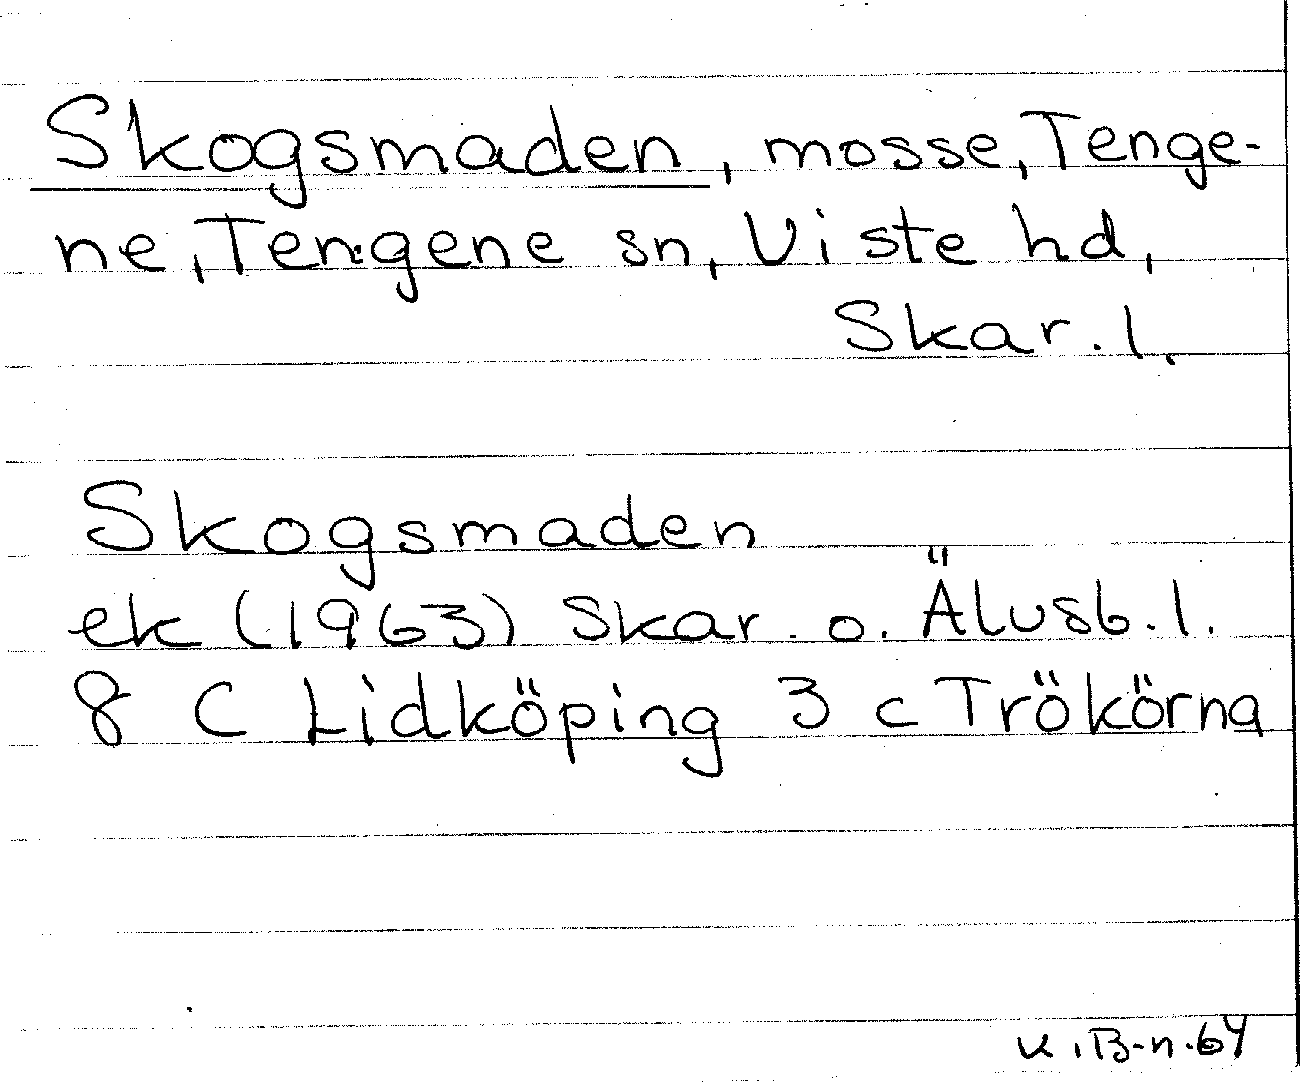 Skogsmaden, mosse, Tenge-
ne, Tengene sn, Viste hd,
Skar. l.
Skogsmaden
ek (1963) Skar. o. Älvsb. l.
8 C Lidköping 3 c Trökörna
K. B-n. 64